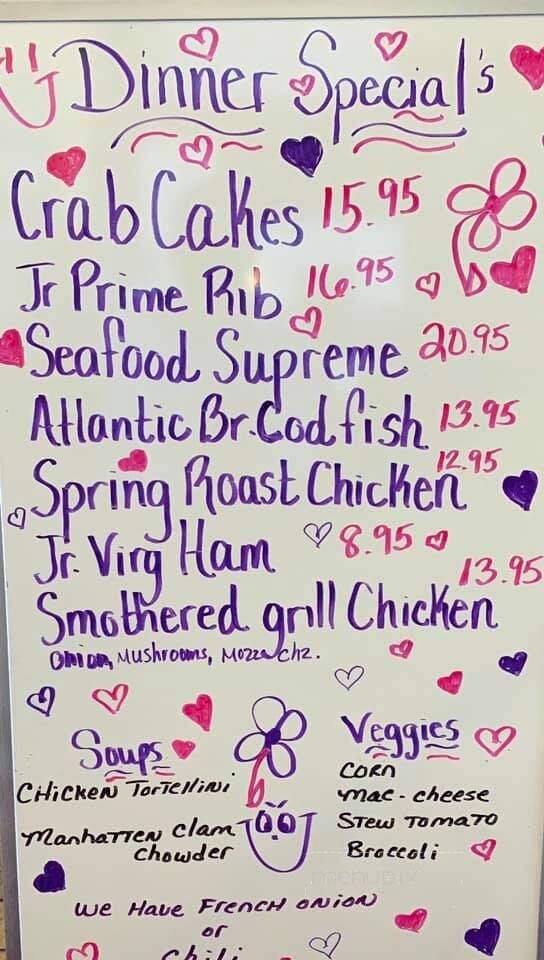 Dinner Special's
Crab Cakes 15.95
Jr Prime Rib 16.95
Seafood Supreme 20.95
Atlantic Br. Codfish 13.95
Spring Roast Chicken 12.95
Jr. Virg Ham 8.95
Smothered grill Chicken 13.95
Onion, Mushrooms, Mozza chz.
Soups
Chicken Tortellini
Manhatten Clam
Chowder
Veggies
Corn
Mac-cheese
Stew Tomato
Broccoli
We Have French Onion
or
Chili